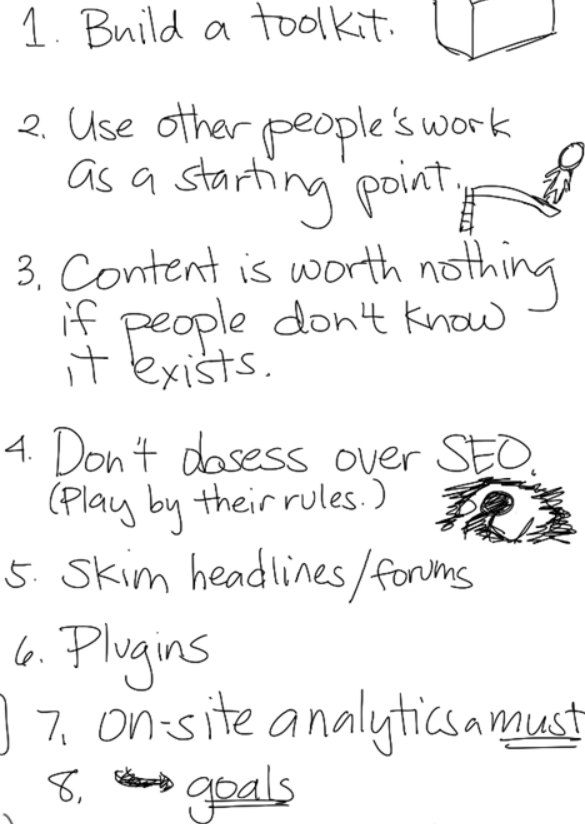 1. Build a toolkit.
2. Use other people's work
as a starting point.
3. Content is worth nothing
if people don't know
it exists.
4. Don't obsess over SEO.
(Play by their rules.)
5. Skim headlines/forums
6. Plugins
7. on-site analytics a must
8. → goals